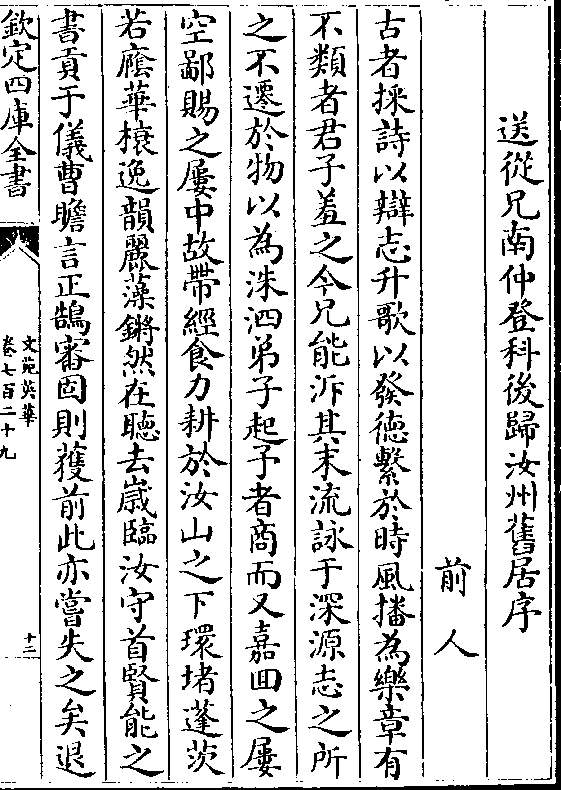 送從兄南仲登科後歸汝州舊居序
前人
古者採詩以辯志升歌以發德繫於時風播為樂章有
不類者君子羞之今兄能泝其末流詠于深源志之所
之不遷於物以為洙泗弟子起予者商而又嘉回之屢
空鄙賜之屢中故帶經食力耕於汝山之下環堵蓬茨
若廕華榱逸韻麗藻鏘然在聽去歲臨汝守首賢能之
書貢于儀曹瞻言正鵠審固則獲前此亦嘗失之矣退
欽定四庫全書
文苑英華
卷七百二十九
十二